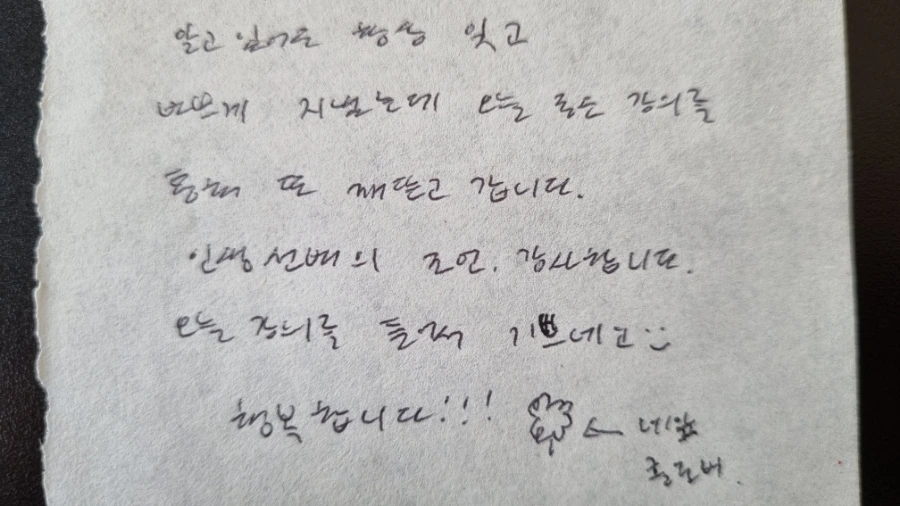 알고 있어도 항상 잊고
바쁘게 지냈는데 오늘 좋은 강의를
통해 또 깨닫고 갑니다.
인생선배의 조언. 감사합니다.
오늘 강의를 들어서 기쁘네고
행복합니다!!!
네잎
클로버.